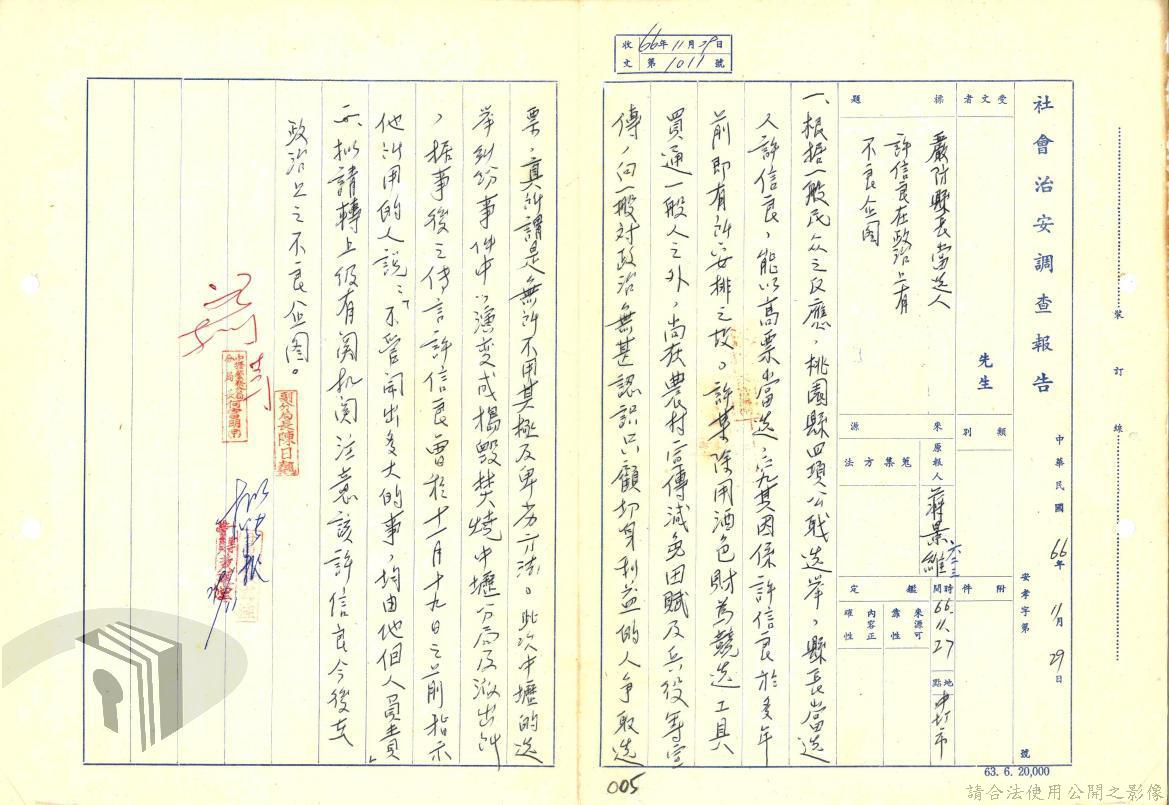 收文 66年11月29日
第1011號
裝訂線
社會治安調查報告
中華民國66年11月29日
安孝字第 號
受文者 先生
類別
附件
標題 嚴防縣長當選人
許信良在政治上有
不良企图
來源 原報人 蔣景維 六二三
蒐集方法
鑑定 時間 66.11.27
地點 中坜市
來源可靠性
內容正確性
一、根据一般民众之反應,桃園縣四項公戝选举,縣長當选
人許信良,能以高票當选,究其因係許信良於多年
前即有所安排之故。許某除用酒色財為競选工具
買通一般人之外,尚在農村宣傳减免田賦及兵役等宣
傳,向一般对政治無甚認識只顧切身利益的人争取选
票,真所謂是無所不用其極及卑劣方法。此次中壢的选
举糾纷事件中以演变成搗毀焚燒中壢分局及派出所
,据事後之传言許信良曾於十一月十九日之前指示
他所用的人説:「不管闹出多大的事,均由他個人負責」
二、拟請轉上级有関机関注意該許信良今後在
政治上之不良企图。
副分局長陳日熱
63. 6. 20,000
005
請合法使用公開之影像